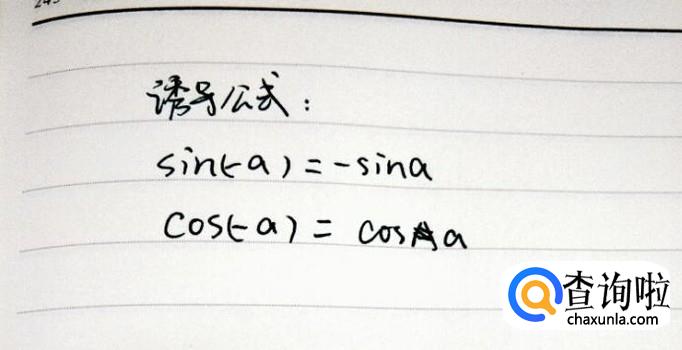 诱导公式:
sin(-a)=-sina
cos(-a)= cosa
查询啦
chaxunla.com